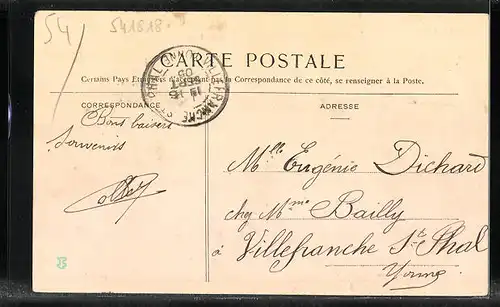 54
541818
CARTE POSTALE
Certains Pays Etrangers n'acceptant pas la Correspondance de ce côté, se renseigner à la Poste.
CORRESPONDANCE
ADRESSE
Bons baisers
Souvenirs
Mlle Eugénie Dichard
chez Mme Bailly
à Villefranche St Phal
Yonne